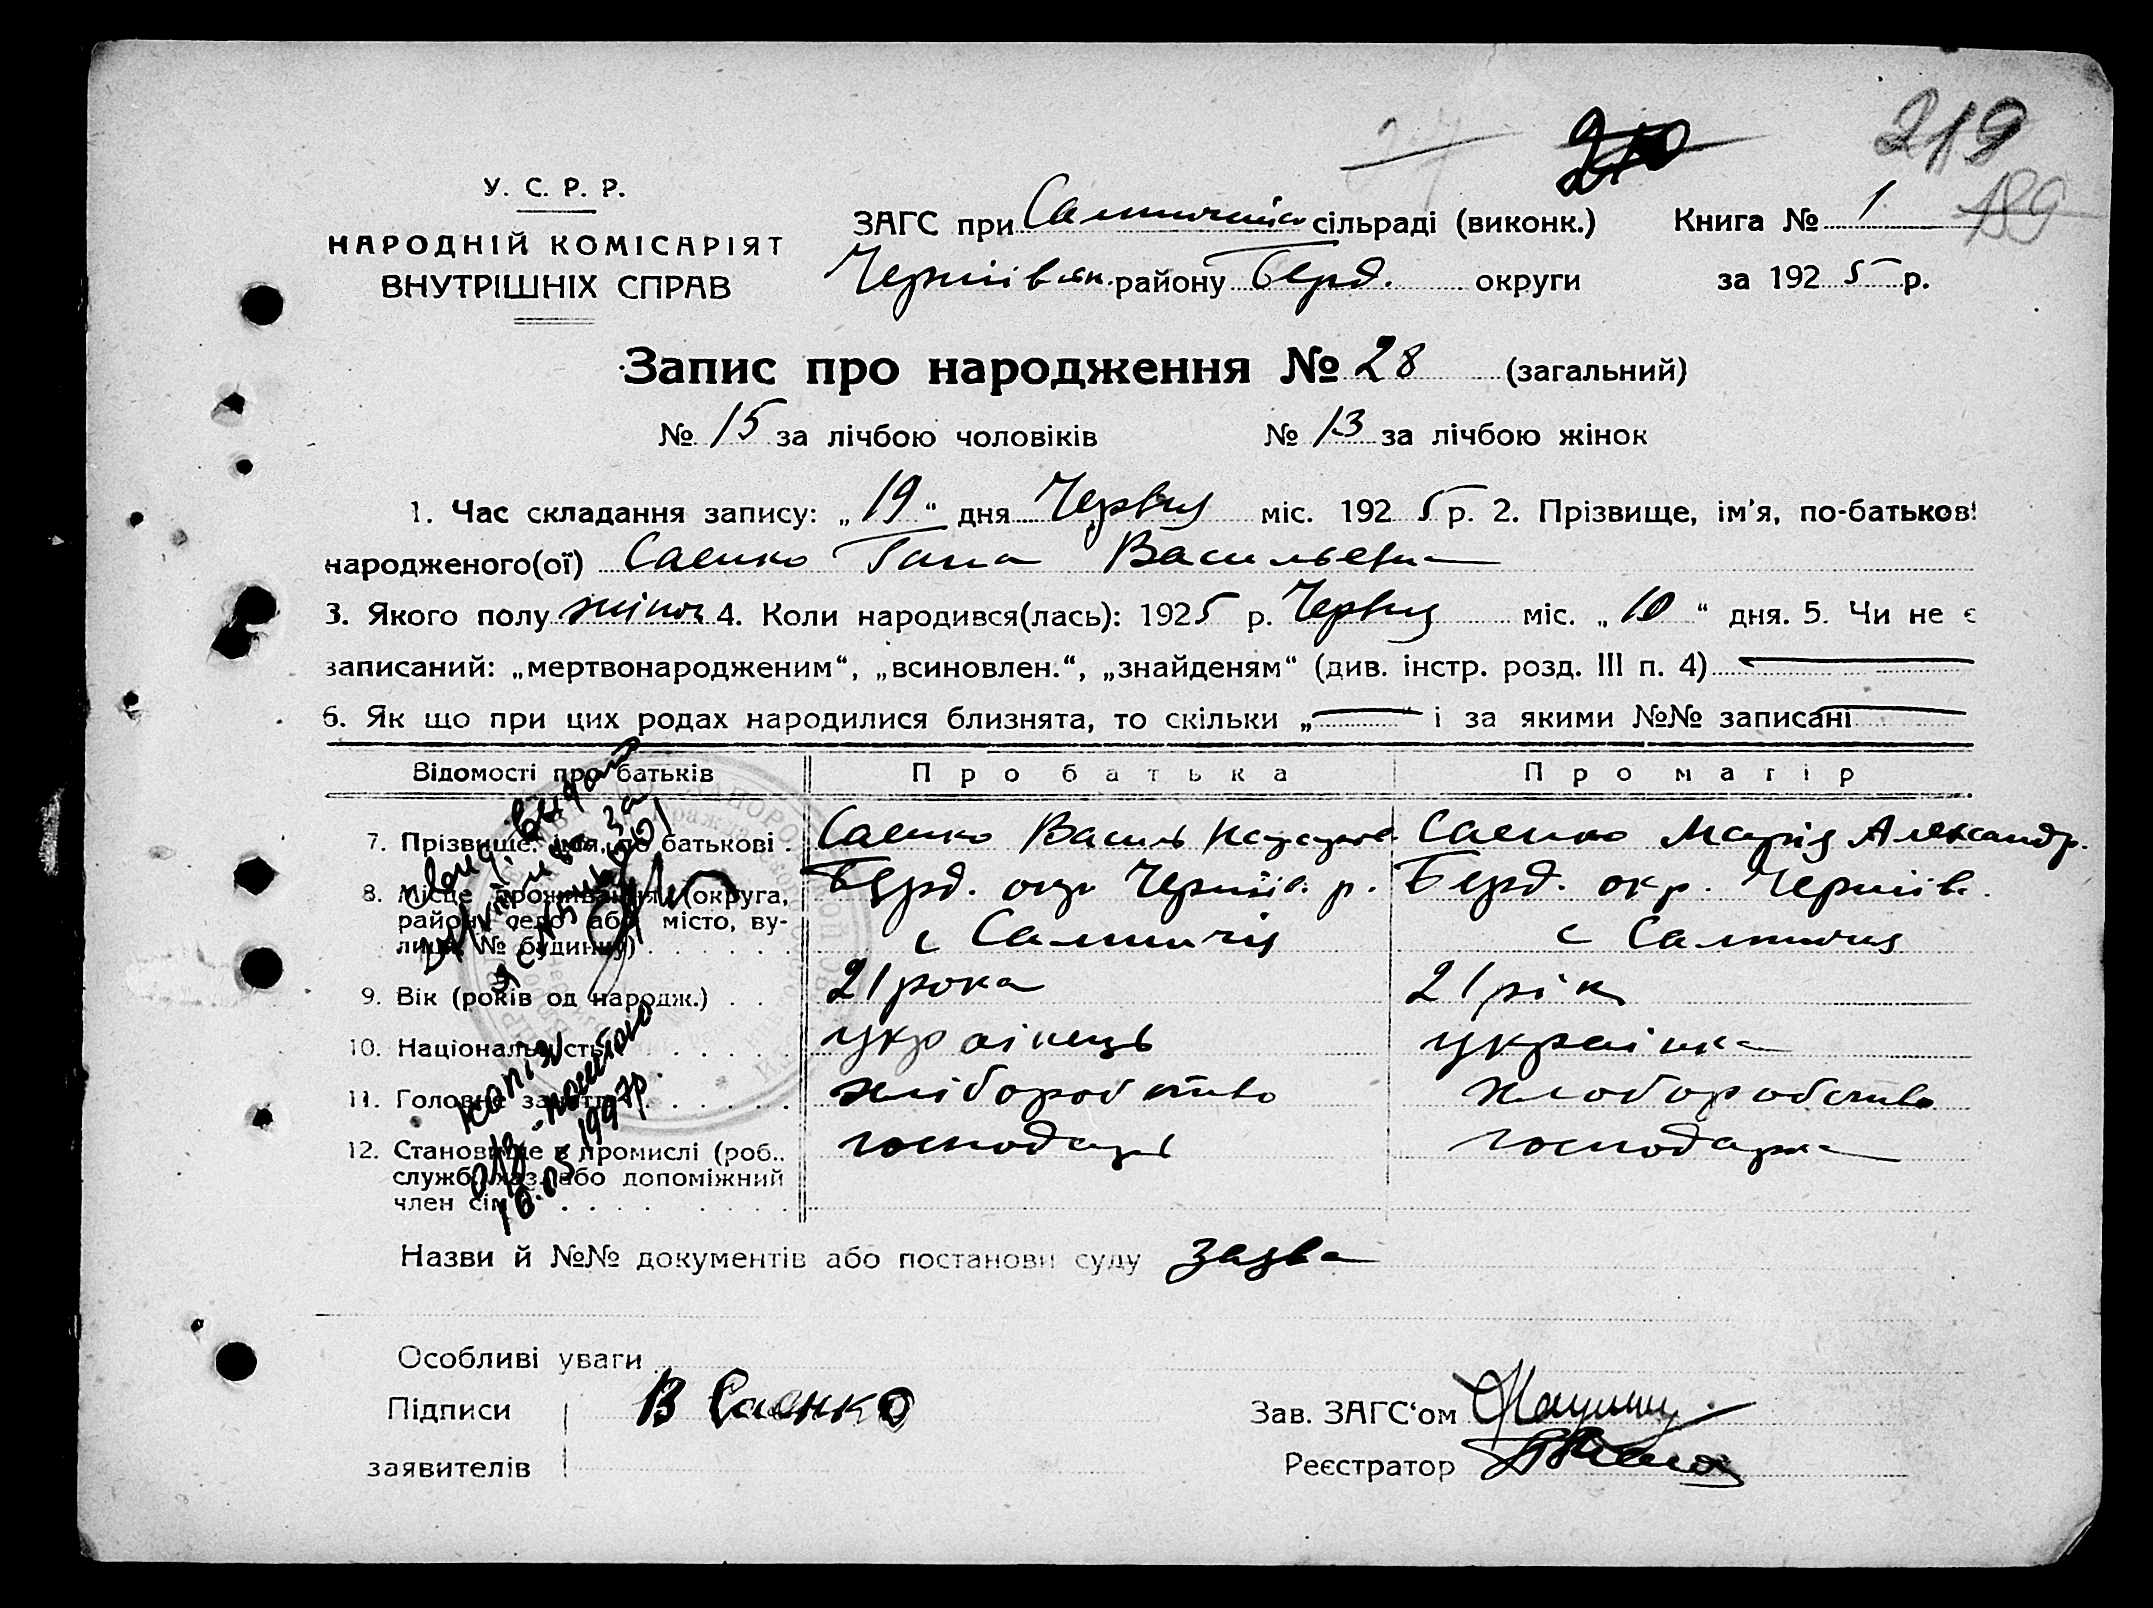 27 210 219
189
У. С. Р. Р.
НАРОДНІЙ КОМІСАРІЯТ
ВНУТРІШНІХ СПРАВ
ЗАГС при сільраді (виконк.) Книга № 1
району Берд. округи за 1925 р.
Запис про народження № 28 (загальний)
№ 15 за лічбою чоловіків № 13 за лічбою жінок
1. Час складання запису: „19“ дня Червця міс. 1925 р. 2. Прізвище, ім'я, по-батькові
народженого(ої) Саенко Гана Васильевна
3. Якого полу жіноч. 4. Коли народився(лась): 1925 р. Червця міс. „10“ дня. 5. Чи не є
записаний: „мертвонародженим“, „всиновлен.“, „знайденям“ (див. інстр. розд. III п. 4)
6. Як що при цих родах народилися близнята, то скільки „ “ і за якими №№ записані
Відомості про батьків Про батька Про матір
7. Прізвище, імя, по батькові . Саенко Василь Саенко Марія Александр.
8. Місце проживання (округа, район, село або місто, вулиця, № будинку) Берд. окр. Черніів. р. Берд. окр. Черніів.
с с
9. Вік (років од народж.) . . 21 рока 21 рік
10. Національність українець українка
11. Головне заняття хліборобство хлоборобство
12. Становище в промислі (роб., служб., хаз. або допоміжний член сім'ї) господарь господарка
копія
поштою
16.05.1997р.
Назви й №№ документів або постанови суду заява
Особливі уваги
Підписи В Саенко Зав. ЗАГС‘ом
заявителів Реєстратор